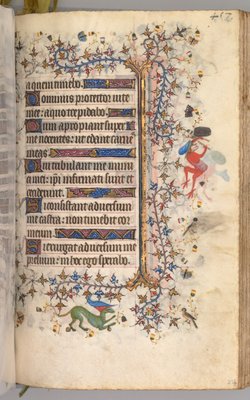 a quem timebo.
Dominus protector uite
mee: a quo trepidabo.
Dum apropiant super
me nocentes: ut edant carnes
meas
Qui tribulant me inimi
ci mei: ipsi infirmati sunt et
ceciderunt.
Si consistant aduersum
me castra: non timebit cor
meum.
Si exurgat aduersum me
prelium: in hoc ego sperabo.